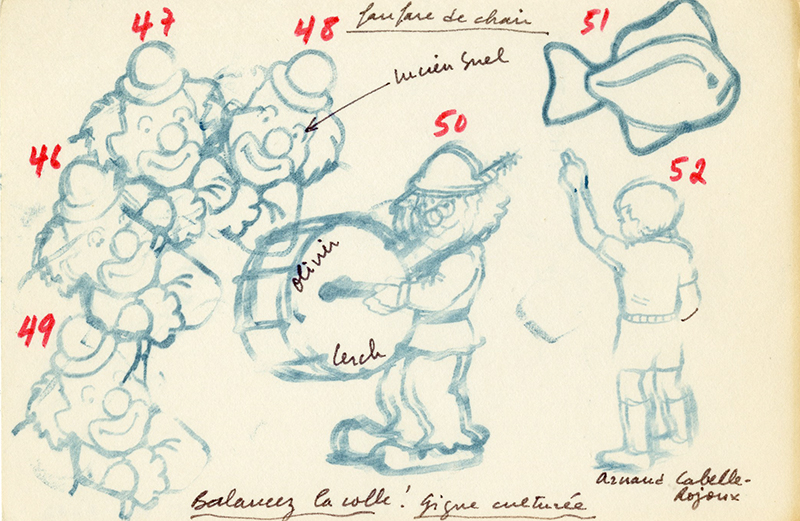 47
48
fanfare de chair
51
Lucien Suel
46
50
52
olivier
Lerch
49
Arnaud Labelle-
Rojoux
Balancez la colle! Gigue culturée